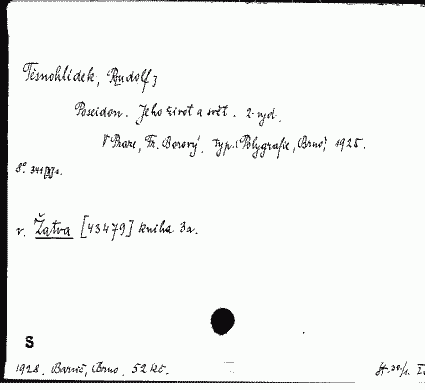 Těsnohlídek, Rudolf,
Poseidon. Jeho život a svět. 2. vyd.
V Praze, Fr. Borový, typ.: Polygrafie, Brno, 1925.
8° 341 s.
v. Žatva [43479] kniha 3a.
S
1928. Barvič, Brno. 52 Kč.